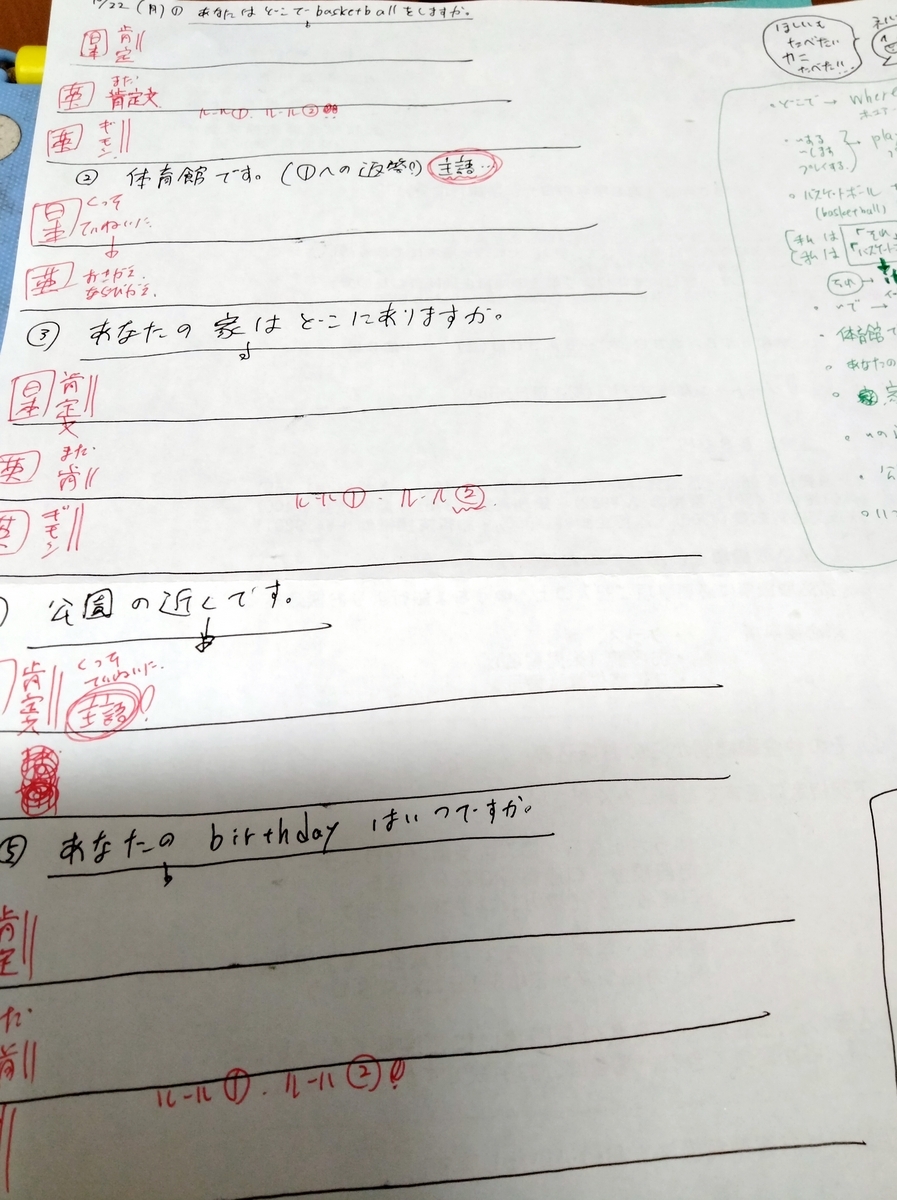 /22 (月) ① あなたは どこで basketball をしますか。
日本 肯定
英 まだ 肯定文
ルール① . ルール②
英 ギモン
② 体育館 です。 (①への返答!!) 主語…
日本 くって ていねいに
英 おきかえ ならびかえ
③ あなたの 家は どこにありますか。
日本 肯定文
英 まだ 肯
ルール① . ルール②
英 ギモン
公園 の 近くです。
肯定文 くって ていねいに 主語!
⑤ あなたの birthday はいつですか。
肯定
だ 肯
ルール① . ルール②!
ほしいも たべたい カニ たべたい!!
・どこで → Where
・〜する 〜します プレイする } pla
・バスケットボール (basketball)
私は 「それ
私は 「バスケット
・体育館
・あなたの
・家